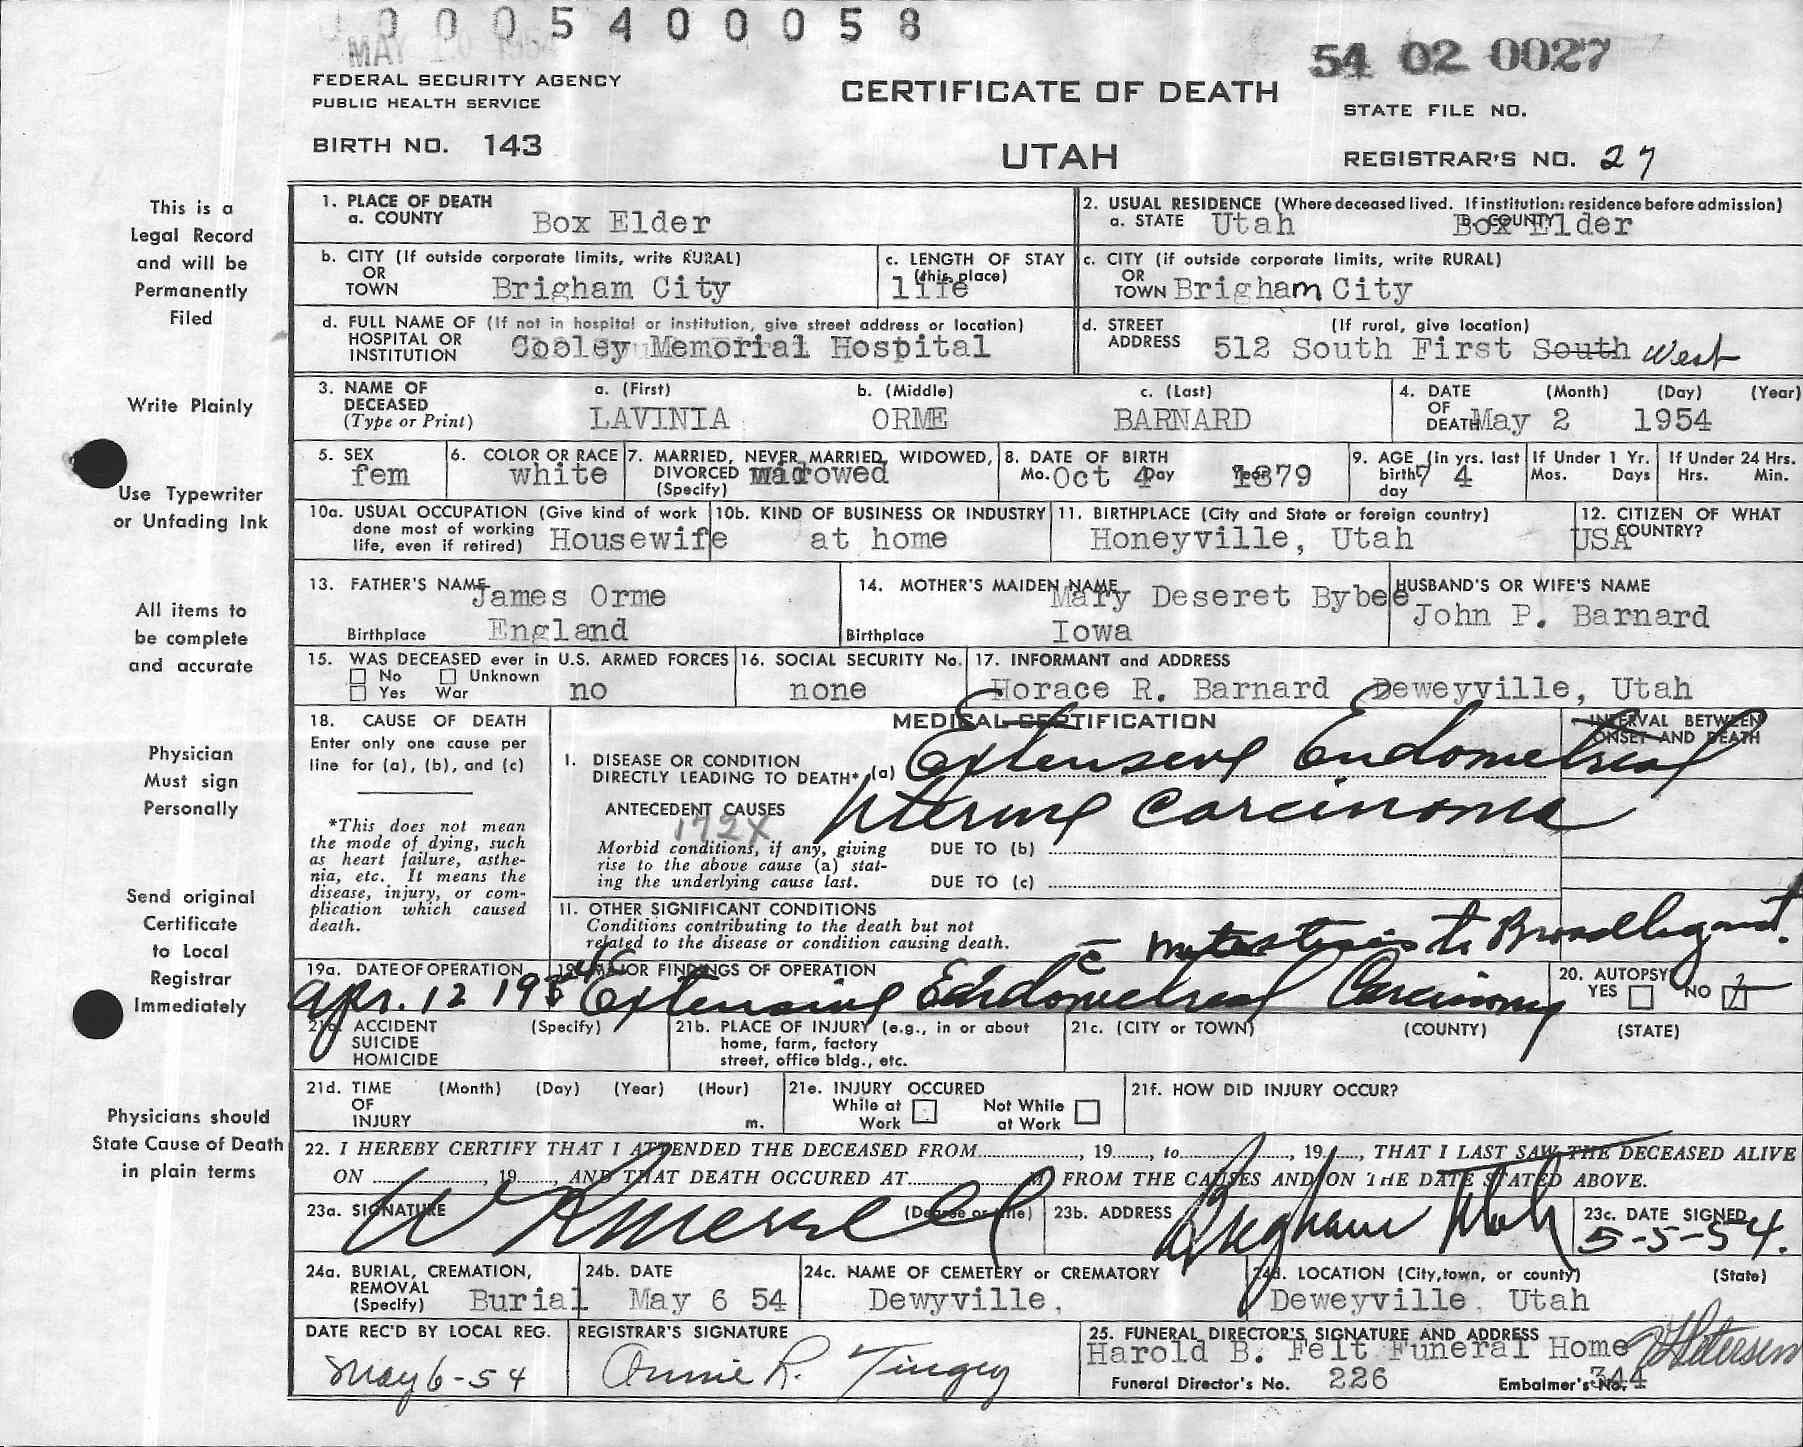 0 0 0 5 4 0 0 0 5 8
MAY 10 1954
54 02 0027
FEDERAL SECURITY AGENCY
PUBLIC HEALTH SERVICE
CERTIFICATE OF DEATH
STATE FILE NO.
BIRTH NO. 143
UTAH
REGISTRAR'S NO. 27
This is a
Legal Record
and will be
Permanently
Filed
Write Plainly
Use Typewriter
or Unfading Ink
All items to
be complete
and accurate
Physician
Must sign
Personally
Send original
Certificate
to Local
Registrar
Immediately
Physicians should
State Cause of Death
in plain terms
1. PLACE OF DEATH
a. COUNTY Box Elder
2. USUAL RESIDENCE (Where deceased lived. If institution: residence before admission)
a. STATE Utah b. COUNTY Box Elder
b. CITY (If outside corporate limits, write RURAL)
OR
TOWN Brigham City
c. LENGTH OF STAY
(this place)
life
c. CITY (if outside corporate limits, write RURAL)
OR
TOWN Brigham City
d. FULL NAME OF (If not in hospital or institution, give street address or location)
HOSPITAL OR
INSTITUTION Cooley Memorial Hospital
d. STREET (If rural, give location)
ADDRESS 512 South First South West
3. NAME OF
DECEASED
(Type or Print)
a. (First) b. (Middle) c. (Last)
LAVINIA ORME BARNARD
4. DATE (Month) (Day) (Year)
OF
DEATH May 2 1954
5. SEX
fem
6. COLOR OR RACE
white
7. MARRIED, NEVER MARRIED, WIDOWED,
DIVORCED widowed
(Specify)
8. DATE OF BIRTH
Mo. Oct 4 Day Year 1879
9. AGE (in yrs. last
birth 7 4
day
If Under 1 Yr.
Mos. Days
If Under 24 Hrs.
Hrs. Min.
10a. USUAL OCCUPATION (Give kind of work
done most of working
life, even if retired) Housewife
10b. KIND OF BUSINESS OR INDUSTRY
at home
11. BIRTHPLACE (City and State or foreign country)
Honeyville, Utah
12. CITIZEN OF WHAT
COUNTRY?
USA
13. FATHER'S NAME James Orme
Birthplace England
14. MOTHER'S MAIDEN NAME
Mary Deseret Bybee
Birthplace Iowa
HUSBAND'S OR WIFE'S NAME
John P. Barnard
15. WAS DECEASED ever in U.S. ARMED FORCES
No Unknown
Yes War no
16. SOCIAL SECURITY No.
none
17. INFORMANT and ADDRESS
Horace R. Barnard Deweyville, Utah
18. CAUSE OF DEATH
Enter only one cause per
line for (a), (b), and (c)
*This does not mean
the mode of dying, such
as heart failure, asthe-
nia, etc. It means the
disease, injury, or com-
plication which caused
death.
MEDICAL CERTIFICATION
INTERVAL BETWEEN
ONSET AND DEATH
I. DISEASE OR CONDITION
DIRECTLY LEADING TO DEATH* (a) Extensive Endometreal
Uterine Carcinoma
ANTECEDENT CAUSES
172X
Morbid conditions, if any, giving
rise to the above cause (a) stat-
ing the underlying cause last.
DUE TO (b)
DUE TO (c)
II. OTHER SIGNIFICANT CONDITIONS
Conditions contributing to the death but not
related to the disease or condition causing death.
c̄ metastasis to Broad ligament.
19a. DATE OF OPERATION
Apr. 12 1954
19b. MAJOR FINDINGS OF OPERATION
Extensive Endometreal Carcinoma
20. AUTOPSY
YES NO
21a. ACCIDENT (Specify)
SUICIDE
HOMICIDE
21b. PLACE OF INJURY (e.g., in or about
home, farm, factory
street, office bldg., etc.
21c. (CITY or TOWN) (COUNTY) (STATE)
21d. TIME (Month) (Day) (Year) (Hour)
OF
INJURY m.
21e. INJURY OCCURED
While at Not While
Work at Work
21f. HOW DID INJURY OCCUR?
22. I HEREBY CERTIFY THAT I ATTENDED THE DECEASED FROM, 19, to, 19, THAT I LAST SAW THE DECEASED ALIVE
ON, 19, AND THAT DEATH OCCURED AT M FROM THE CAUSES AND ON THE DATE STATED ABOVE.
23a. SIGNATURE (Degree or title)
W R Merrell
23b. ADDRESS
Brigham Utah
23c. DATE SIGNED
5-5-54.
24a. BURIAL, CREMATION,
REMOVAL
(Specify) Burial
24b. DATE
May 6 54
24c. NAME OF CEMETERY or CREMATORY
Dewyville,
24d. LOCATION (City, town, or county) (State)
Deweyville, Utah
DATE REC'D BY LOCAL REG.
May 6-54
REGISTRAR'S SIGNATURE
Annie R. Tingey
25. FUNERAL DIRECTOR'S SIGNATURE AND ADDRESS
Harold B. Felt Funeral Home Petersen
Funeral Director's No. 226 Embalmer's No. 344